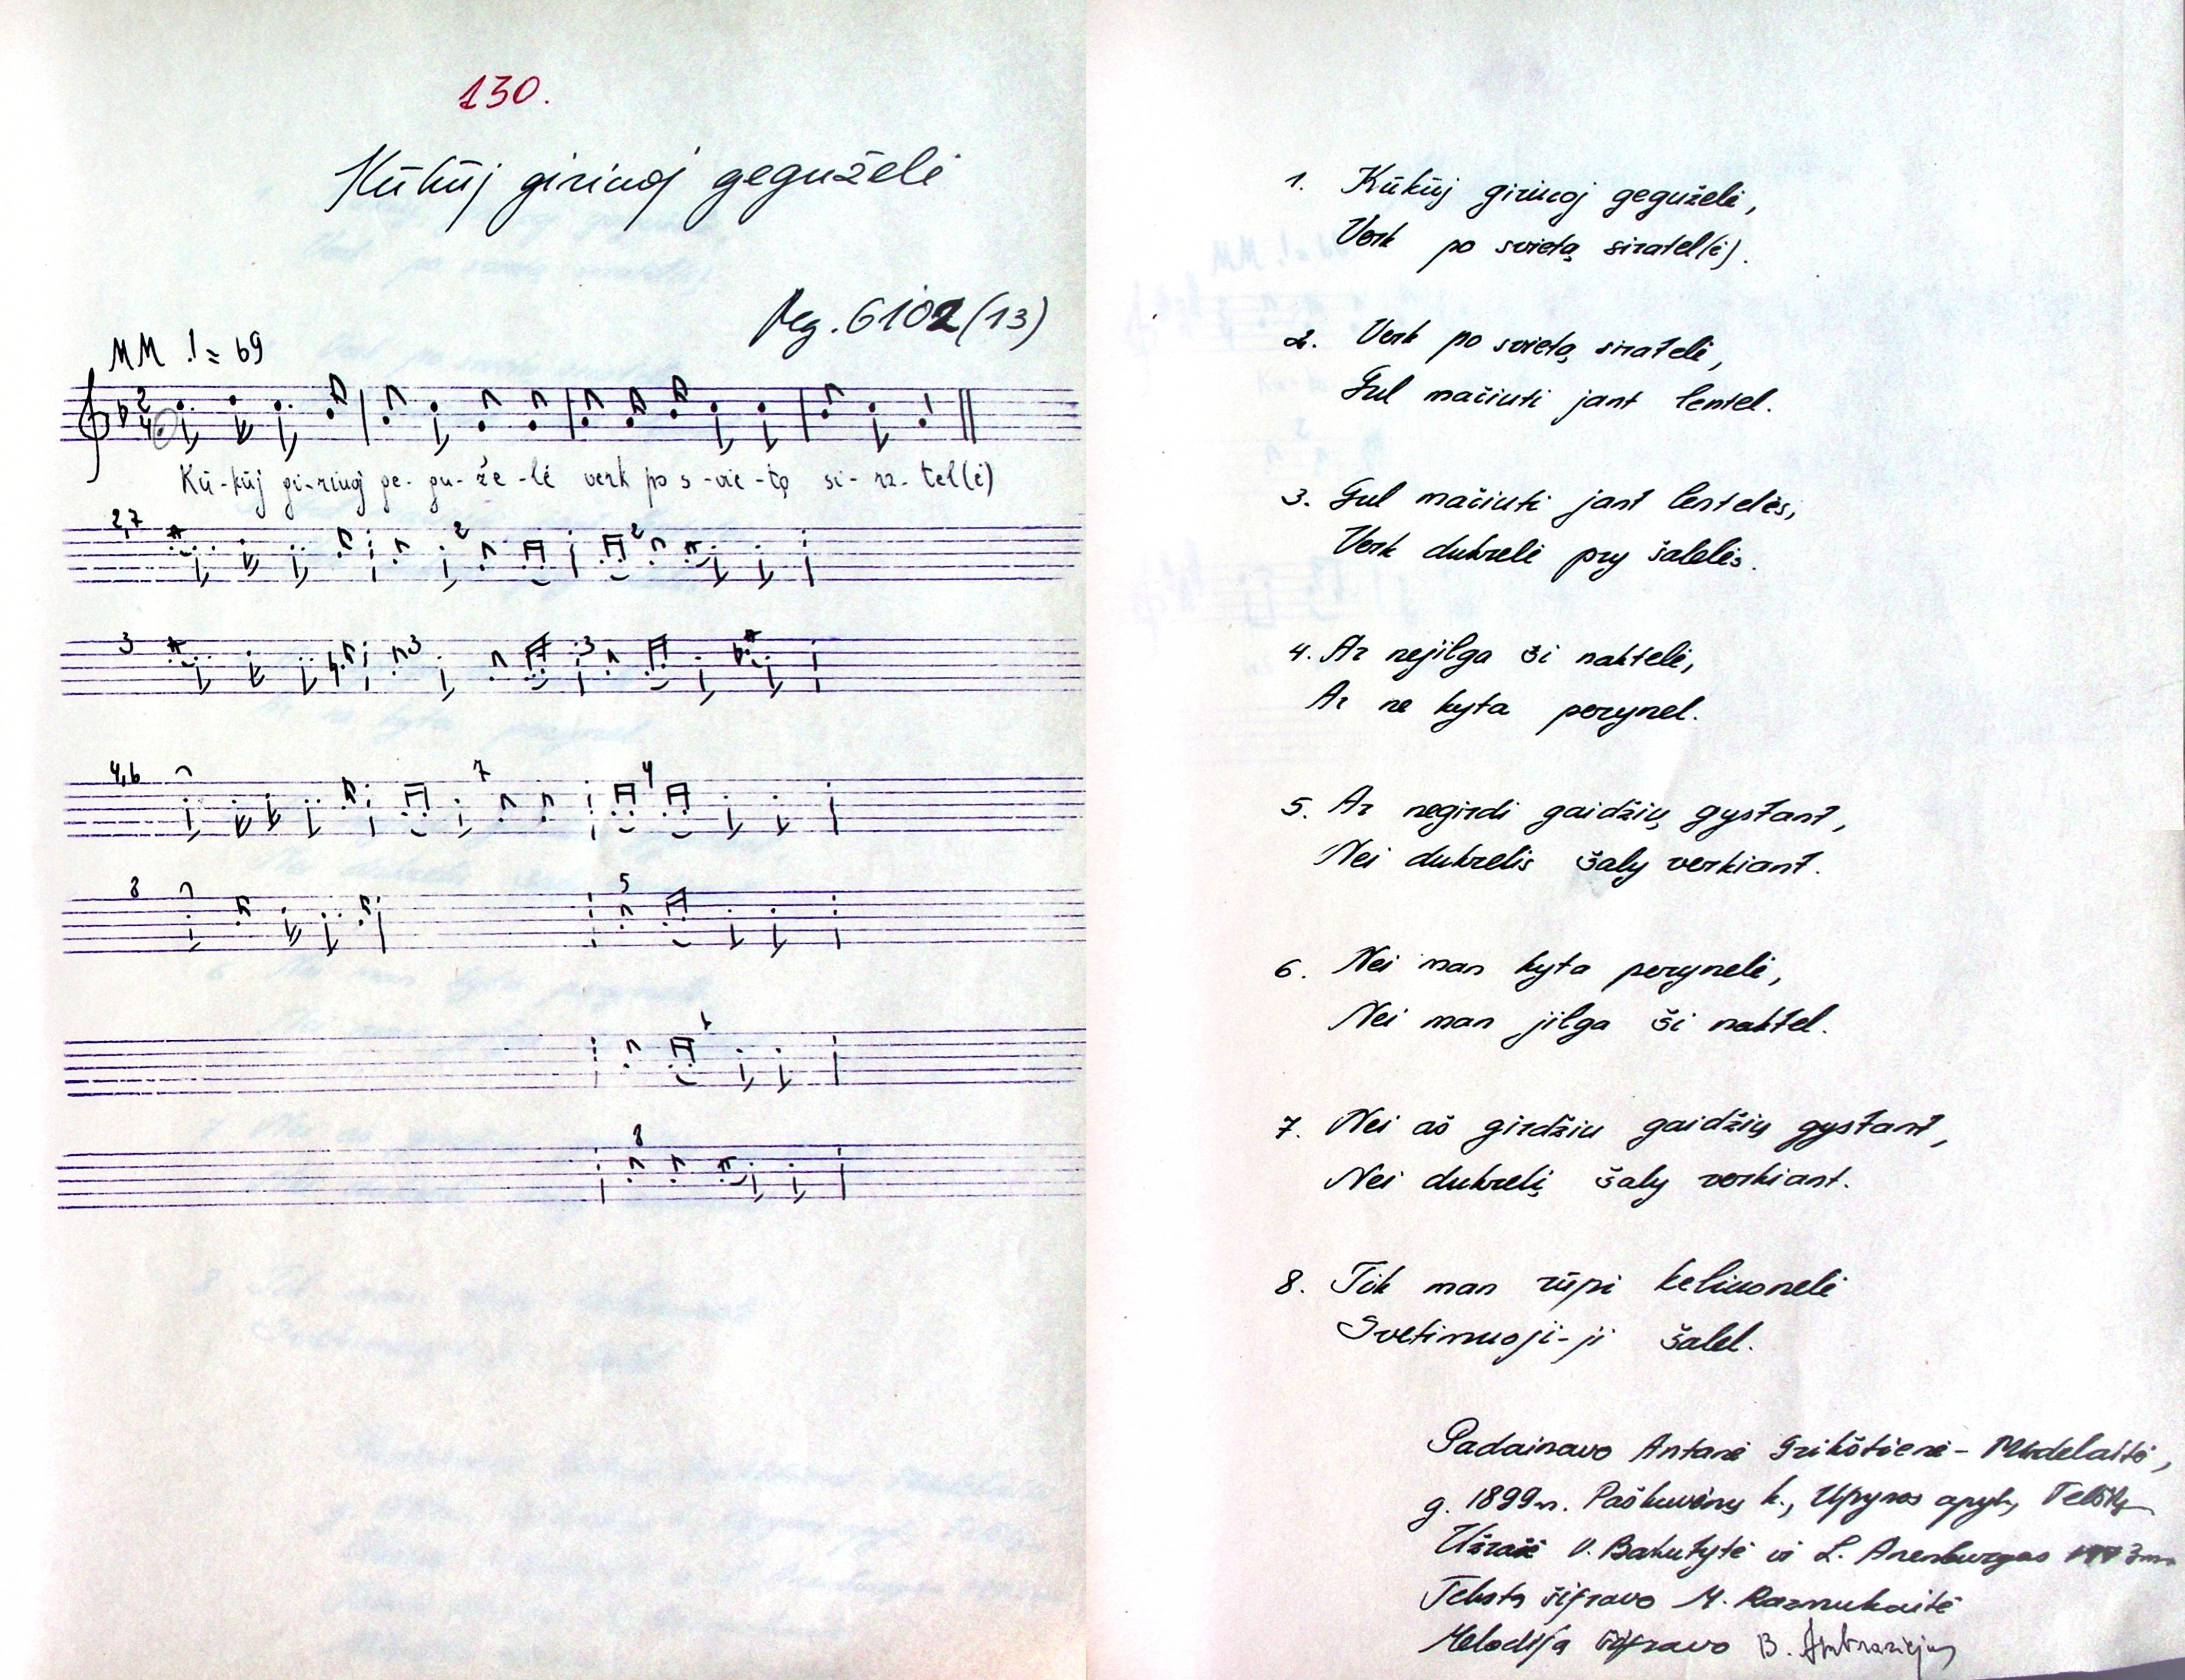 130.
Kūkūj girinoj gegužėlė
Reg. 6102(13)
MM ♩. = 69
Kū-kūj gi-rinoj ge-gu-žė-lė verk po s-vie-tą si-ra-tel(ė)
2,7
2
2
3
3
3
4,6
7
4
8
5
1
8
1. Kūkūj girinoj gegužėlė,
Verk po svietą siratel(ė).
2. Verk po svietą siratelė,
Gul mačiuti jant lentel.
3. Gul mačiuti jant lentelės,
Verk dukrelė pry šalelės.
4. Ar nejilga ši naktelė,
Ar ne kyta perynel.
5. Ar negirdi gaidžių gystant,
Nei dukrelis šaly verkiant.
6. Nei man kyta perynelė,
Nei man jilga ši naktel.
7. Nei aš girdžiu gaidžių gystant,
Nei dukrelį šaly verkiant.
8. Tik man rūpi keliuonelė
Svetimuoji-ji šalel.
Padainavo Antanė Grikštienė-
g. 1899 m. Paškuvėnų k., Upynos apyl.,
Užrašė V. Bakutytė ir L. Anenburgas
Tekstą šifravo M. Razmukaitė
Melodiją šifravo B. Ambraziejus